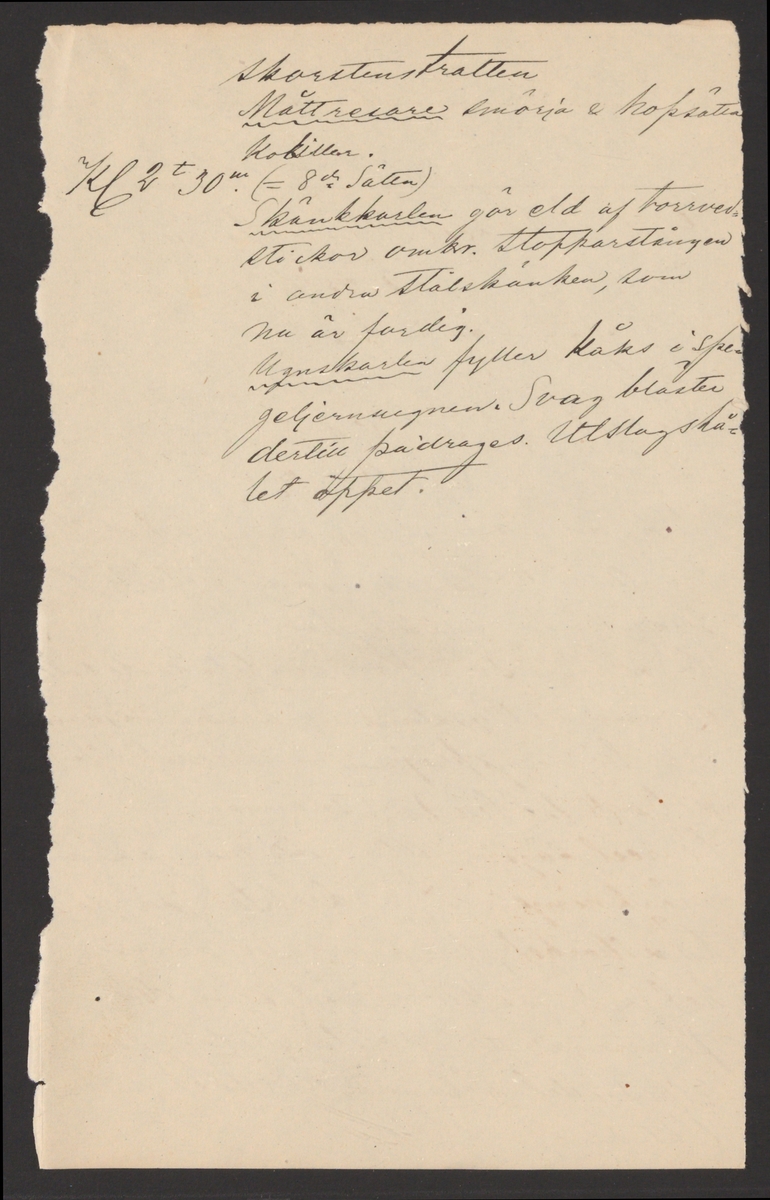 skorstenstratten
Måttresare smörja & hopsäta
Kokiller.
Kl 2t 30m. (= 8de Säten)
Skänkkarlen gör eld af torrved-
stickor omkr. stopparstången
i andra stålskänken, som
nu är färdig.
Ugnskarlen fyller kåks i spe-
geljernsugnen. Svag bläster
dertill pådrages. Utslagshå-
let öppet.